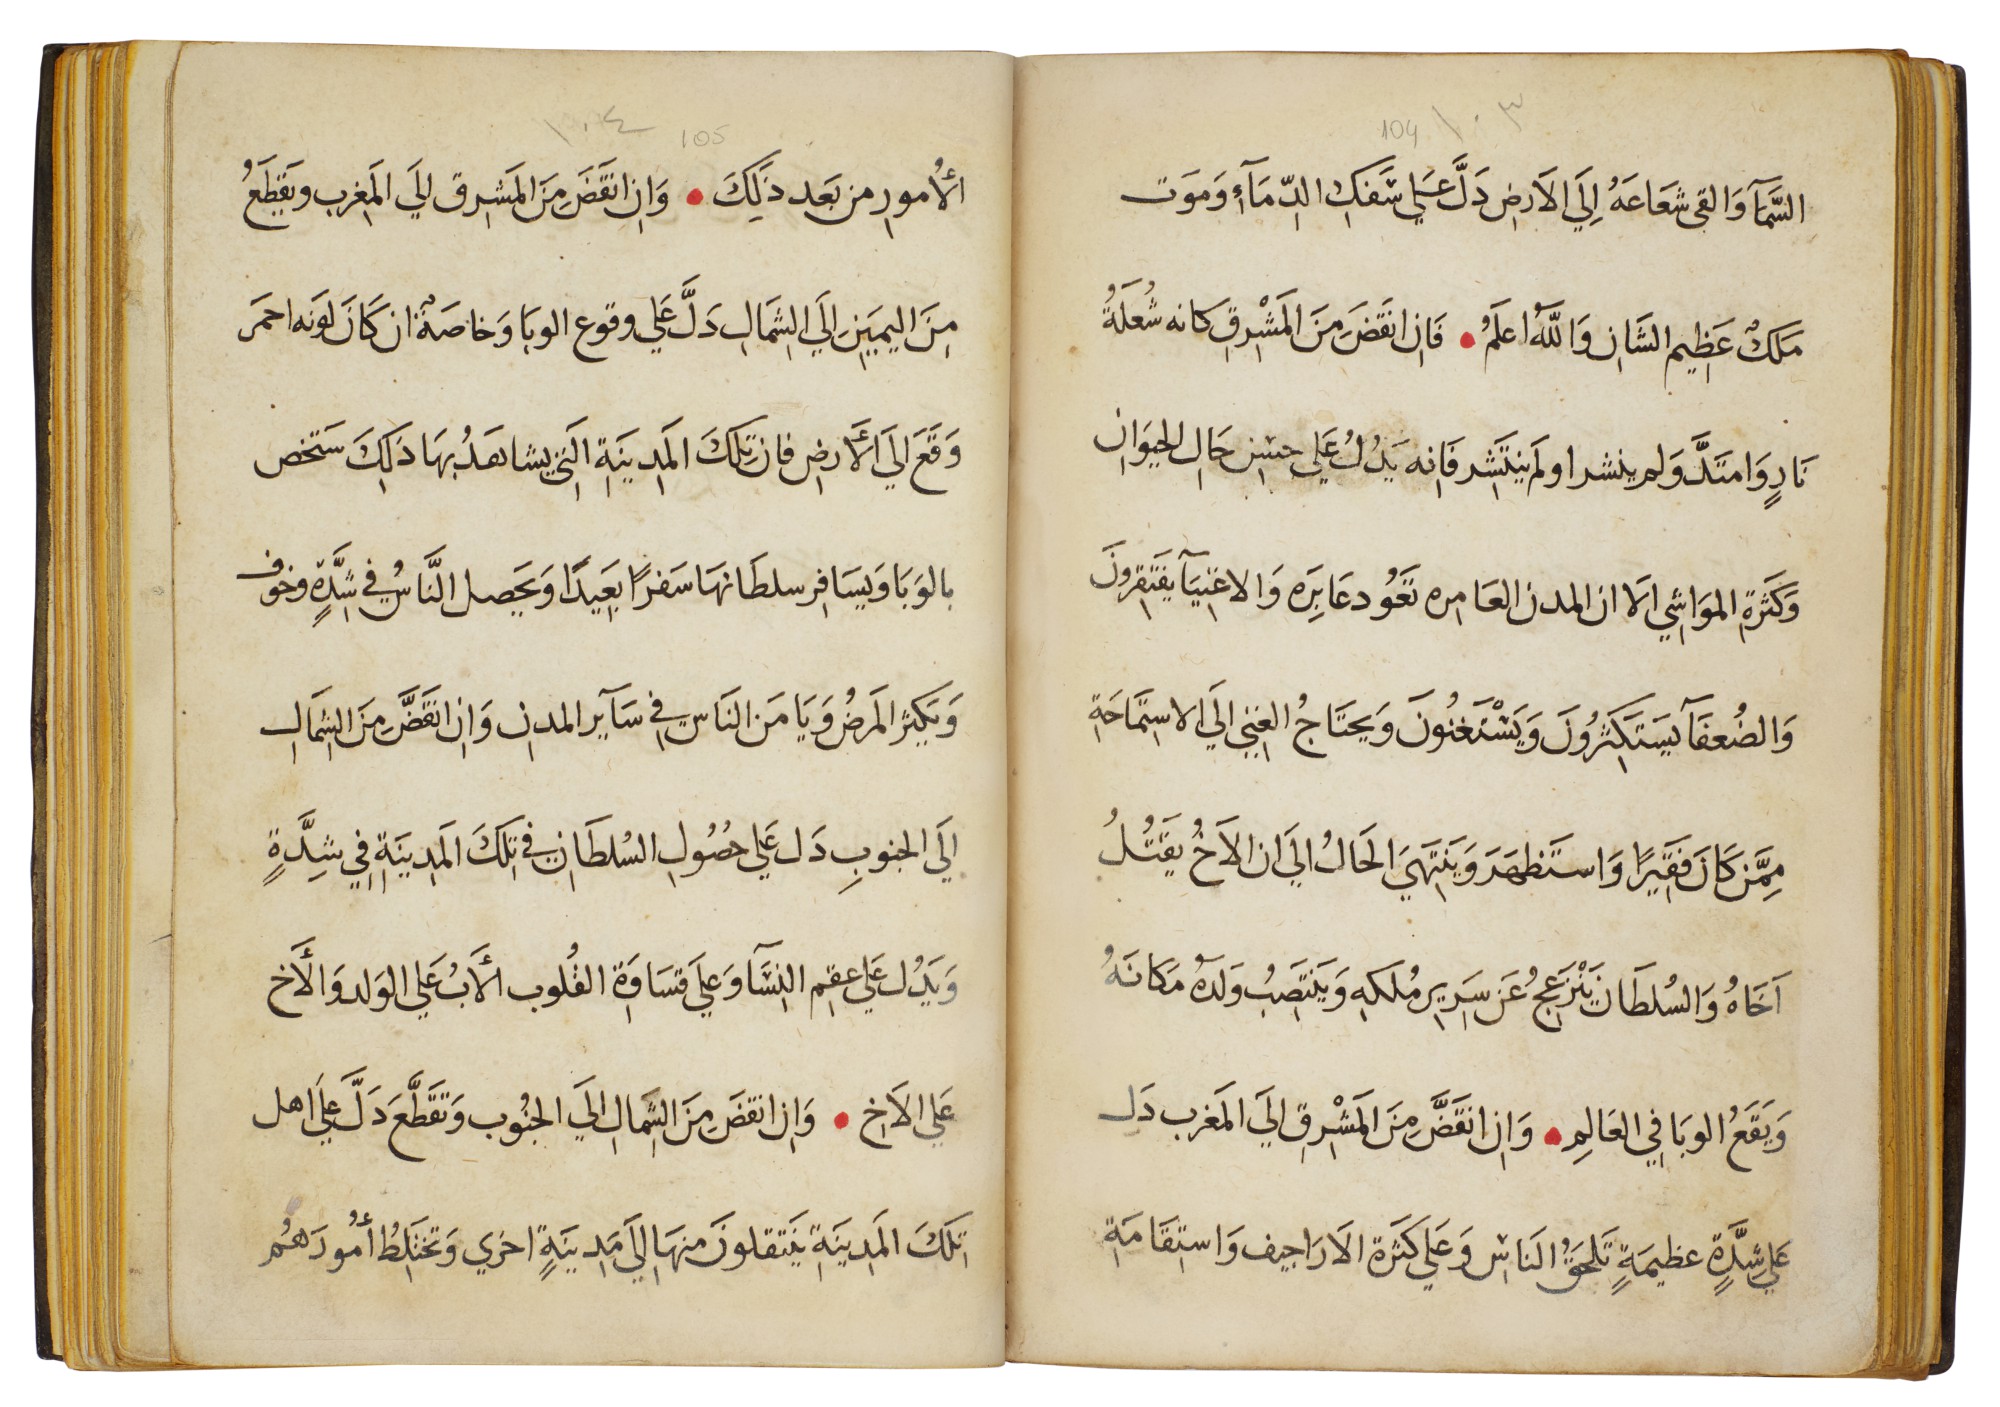 104 ١٠٣
السَّمَآ وَالقى شعَاعَهُ اِلَي الاَرضِ دَلَّ عَلي سَفكِ الدّمَآءِ وَمَوَت
مَلكٌ عَظِيم الشَانِ وَاللَّهُ اعلَمُ • فَانِ انقَضَ مِنَ المَشْرِقِ كانه شُعلَةُ
نَارٍ وَامتَدَّ وَلم ينشر او لَم ينتَشر فَانِه يَدُلُ عَلي حسْنِ حَالِ الحيوَانِ
وَكَثرةِ الموَاشِي اِلا ان المدن العَامره تعَوُد عَابِرَه وَالاغنيَآ يفتَقِرونَ
وَالضُعفَآ يَستَكَثرُونَ وَيَسْتَغنُونَ وَيحتَاجُ الغِني اِلَي الاسِتمَاحَةِ
مِمَّن كَانَ فَقِيرًا وَاستَظهَرَ وَيَنتِهيَ الحَالُ اِلَي ان الاَخُ يقَتُلُ
اَخَاهُ وَالسُلطَان يَنْزَعِجُ عَن سَرِيرِ مُلكهِ وَيَنتَصِبُ وَلدهُ مَكانَهُ
وَيَقَعُ الوبَا فِي العَالِمِ • وَانِ انقَضَّ مِنَ المَشْرِقِ اِلَي المَغرب دَل
عَلي شِدَّةٍ عظيمَةٍ تَلحَقُ النَاسَ وَعَلي كَثرَة الاَرَاجيف وَاستِقَامَةِ
١٠٤ 105
الأُمورِ من بَعَد ذَلِكَ • وَانِ انقَضَ مِنَ المَشرِق اِلي المَغرب ويَقطَعُ
مِنَ اليمَينِ اِلَي الشِمَالِ دَلَّ عَلي وقوع الوبَا وَخاصَةً ان كَانَ لونَه احمَر
وَقَعَ اِلَي الأَرضِ فان تِلكَ المَدِينَةِ التي يشاهَدُ بهَا ذَلِكَ سَتخص
بالوَبَا وَيسَافِر سلطَانهَا سَفرًا بَعِيدًا وَيَحصل النَّاسُ فِي شِدَّةٍ وخوف
وَيَكثِر المَرضُ وَيَا مَن النَاس في سَآيرِ المدنِ وَانِ انقَضَّ مِنَ الشِمَالِ
اِلَي الجنوبِ دَل عَلي حصُولِ السُلطَانِ في تِلكَ المَدِينَةِ فِي شِدَّةٍ
وَيَدُل عَلي عقِم النِسَآ وَعلَي قسَاوَة القُلوب الأَبُ عَلي الوَلد وَالأَخ
عَلي الاَخِ • وَانِ انقضَ مِنَ الشِمالِ اِلَي الجنُوب وَتقَطَّعَ دَلَّ عَلي اهل
تِلكَ المَدِينَةِ يَنتَقلونَ منهَا اِلَي مَدِينَةٍ اخرَي وَتختَلِطُ أُمُورَهُم